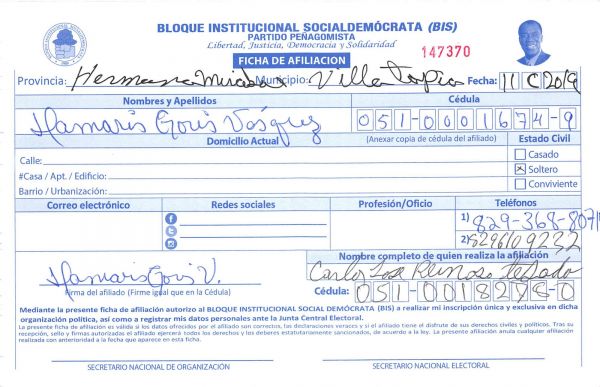 BLOQUE INSTITUCIONAL SOCIALDEMÓCRATA (BIS)
PARTIDO PEÑAGOMISTA
Libertad, Justicia, Democracia y Solidaridad
147370
FICHA DE AFILIACION
Provincia: Hermanas Mirabal Municipio: Villa Tapia Fecha: 11 2019
Nombres y Apellidos Cédula
Damaris Goris Vásquez 051-0001674-9
Domicilio Actual (Anexar copia de cédula del afiliado) Estado Civil
Calle: Casado
#Casa / Apt. / Edificio: Soltero
Barrio / Urbanización: Conviviente
Correo electrónico Redes sociales Profesión/Oficio Teléfonos
1) 829-368-8071
2) 8296109232
Nombre completo de quien realiza la afiliación
Damaris Goris V. Carlos Jose Reinoso
Firma del afiliado (Firme igual que en la Cédula) Cédula: 051-0018278-0
Mediante la presente ficha de afiliación autorizo al BLOQUE INSTITUCIONAL SOCIAL DEMÓCRATA (BIS) a realizar mi inscripción única y exclusiva en dicha
organización política, así como a registrar mis datos personales ante la Junta Central Electoral.
La presente ficha de afiliación es válida si los datos ofrecidos por el afiliado son correctos, las declaraciones veraces y si el afiliado tiene el disfrute de sus derechos civiles y políticos. Tras su
recepción, sello y firmas autorizadas el afiliado ejercerá todos los derechos y los deberes estatutariamente sancionados, de acuerdo a la ley. La presente afiliación anula cualquier afiliación
realizada con anterioridad a la fecha que aparece en esta ficha.
SECRETARIO NACIONAL DE ORGANIZACIÓN SECRETARIO NACIONAL ELECTORAL